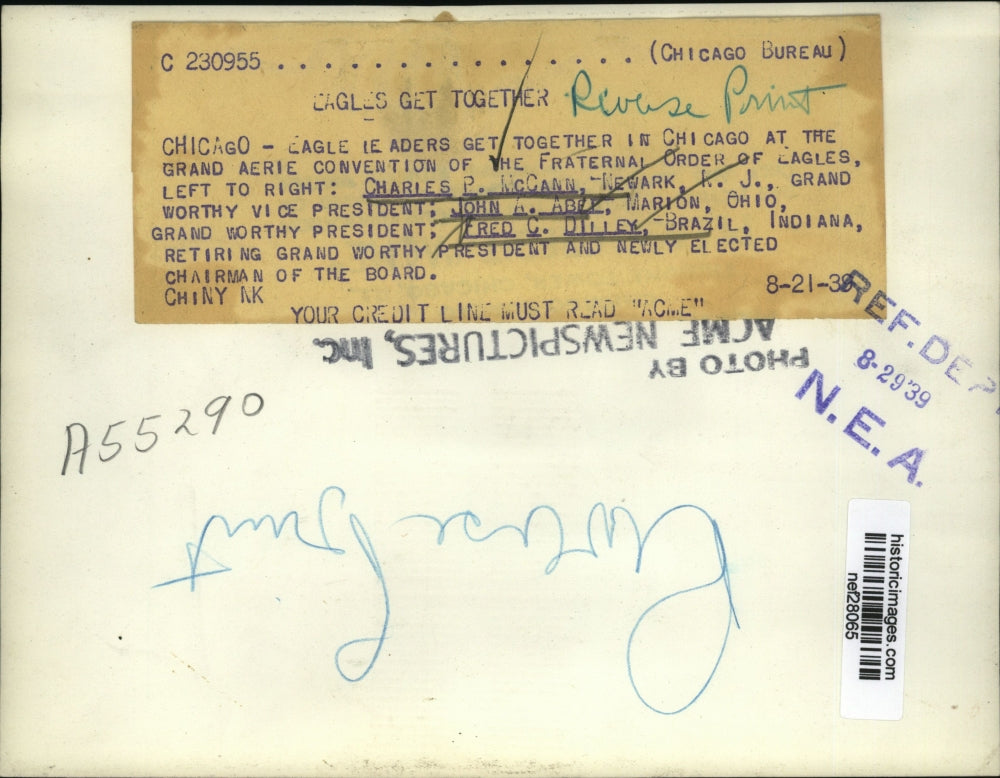 C 230955 . . . . . . . . . . . . . . . . . (CHICAGO BUREAU)
EAGLES GET TOGETHER Reverse Print
CHICAGO - EAGLE LEADERS GET TOGETHER IN CHICAGO AT THE
GRAND AERIE CONVENTION OF THE FRATERNAL ORDER OF EAGLES,
LEFT TO RIGHT: CHARLES P. MCCANN, NEWARK, N. J., GRAND
WORTHY VICE PRESIDENT; JOHN A. ABEY, MARION, OHIO,
GRAND WORTHY PRESIDENT; FRED C. DILLEY, BRAZIL, INDIANA,
RETIRING GRAND WORTHY PRESIDENT AND NEWLY ELECTED
CHAIRMAN OF THE BOARD.
CHI NY NK 8-21-39
YOUR CREDIT LINE MUST READ "ACME"
PHOTO BY
ACME NEWSPICTURES, Inc.
REF. DEPT
8-29 39
N.E.A.
A55290
Reverse Print
historicimages.com
nef28065